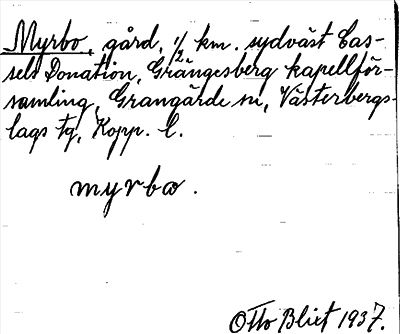 Myrbo, gård, 1/2 km. sydväst Cas-
sels Donation, Grängesberg kapellför-
samling, Grangärde sn, Västerbergs-
lags tg, Kopp. l.
myrbω.
Otto Blixt 1937.